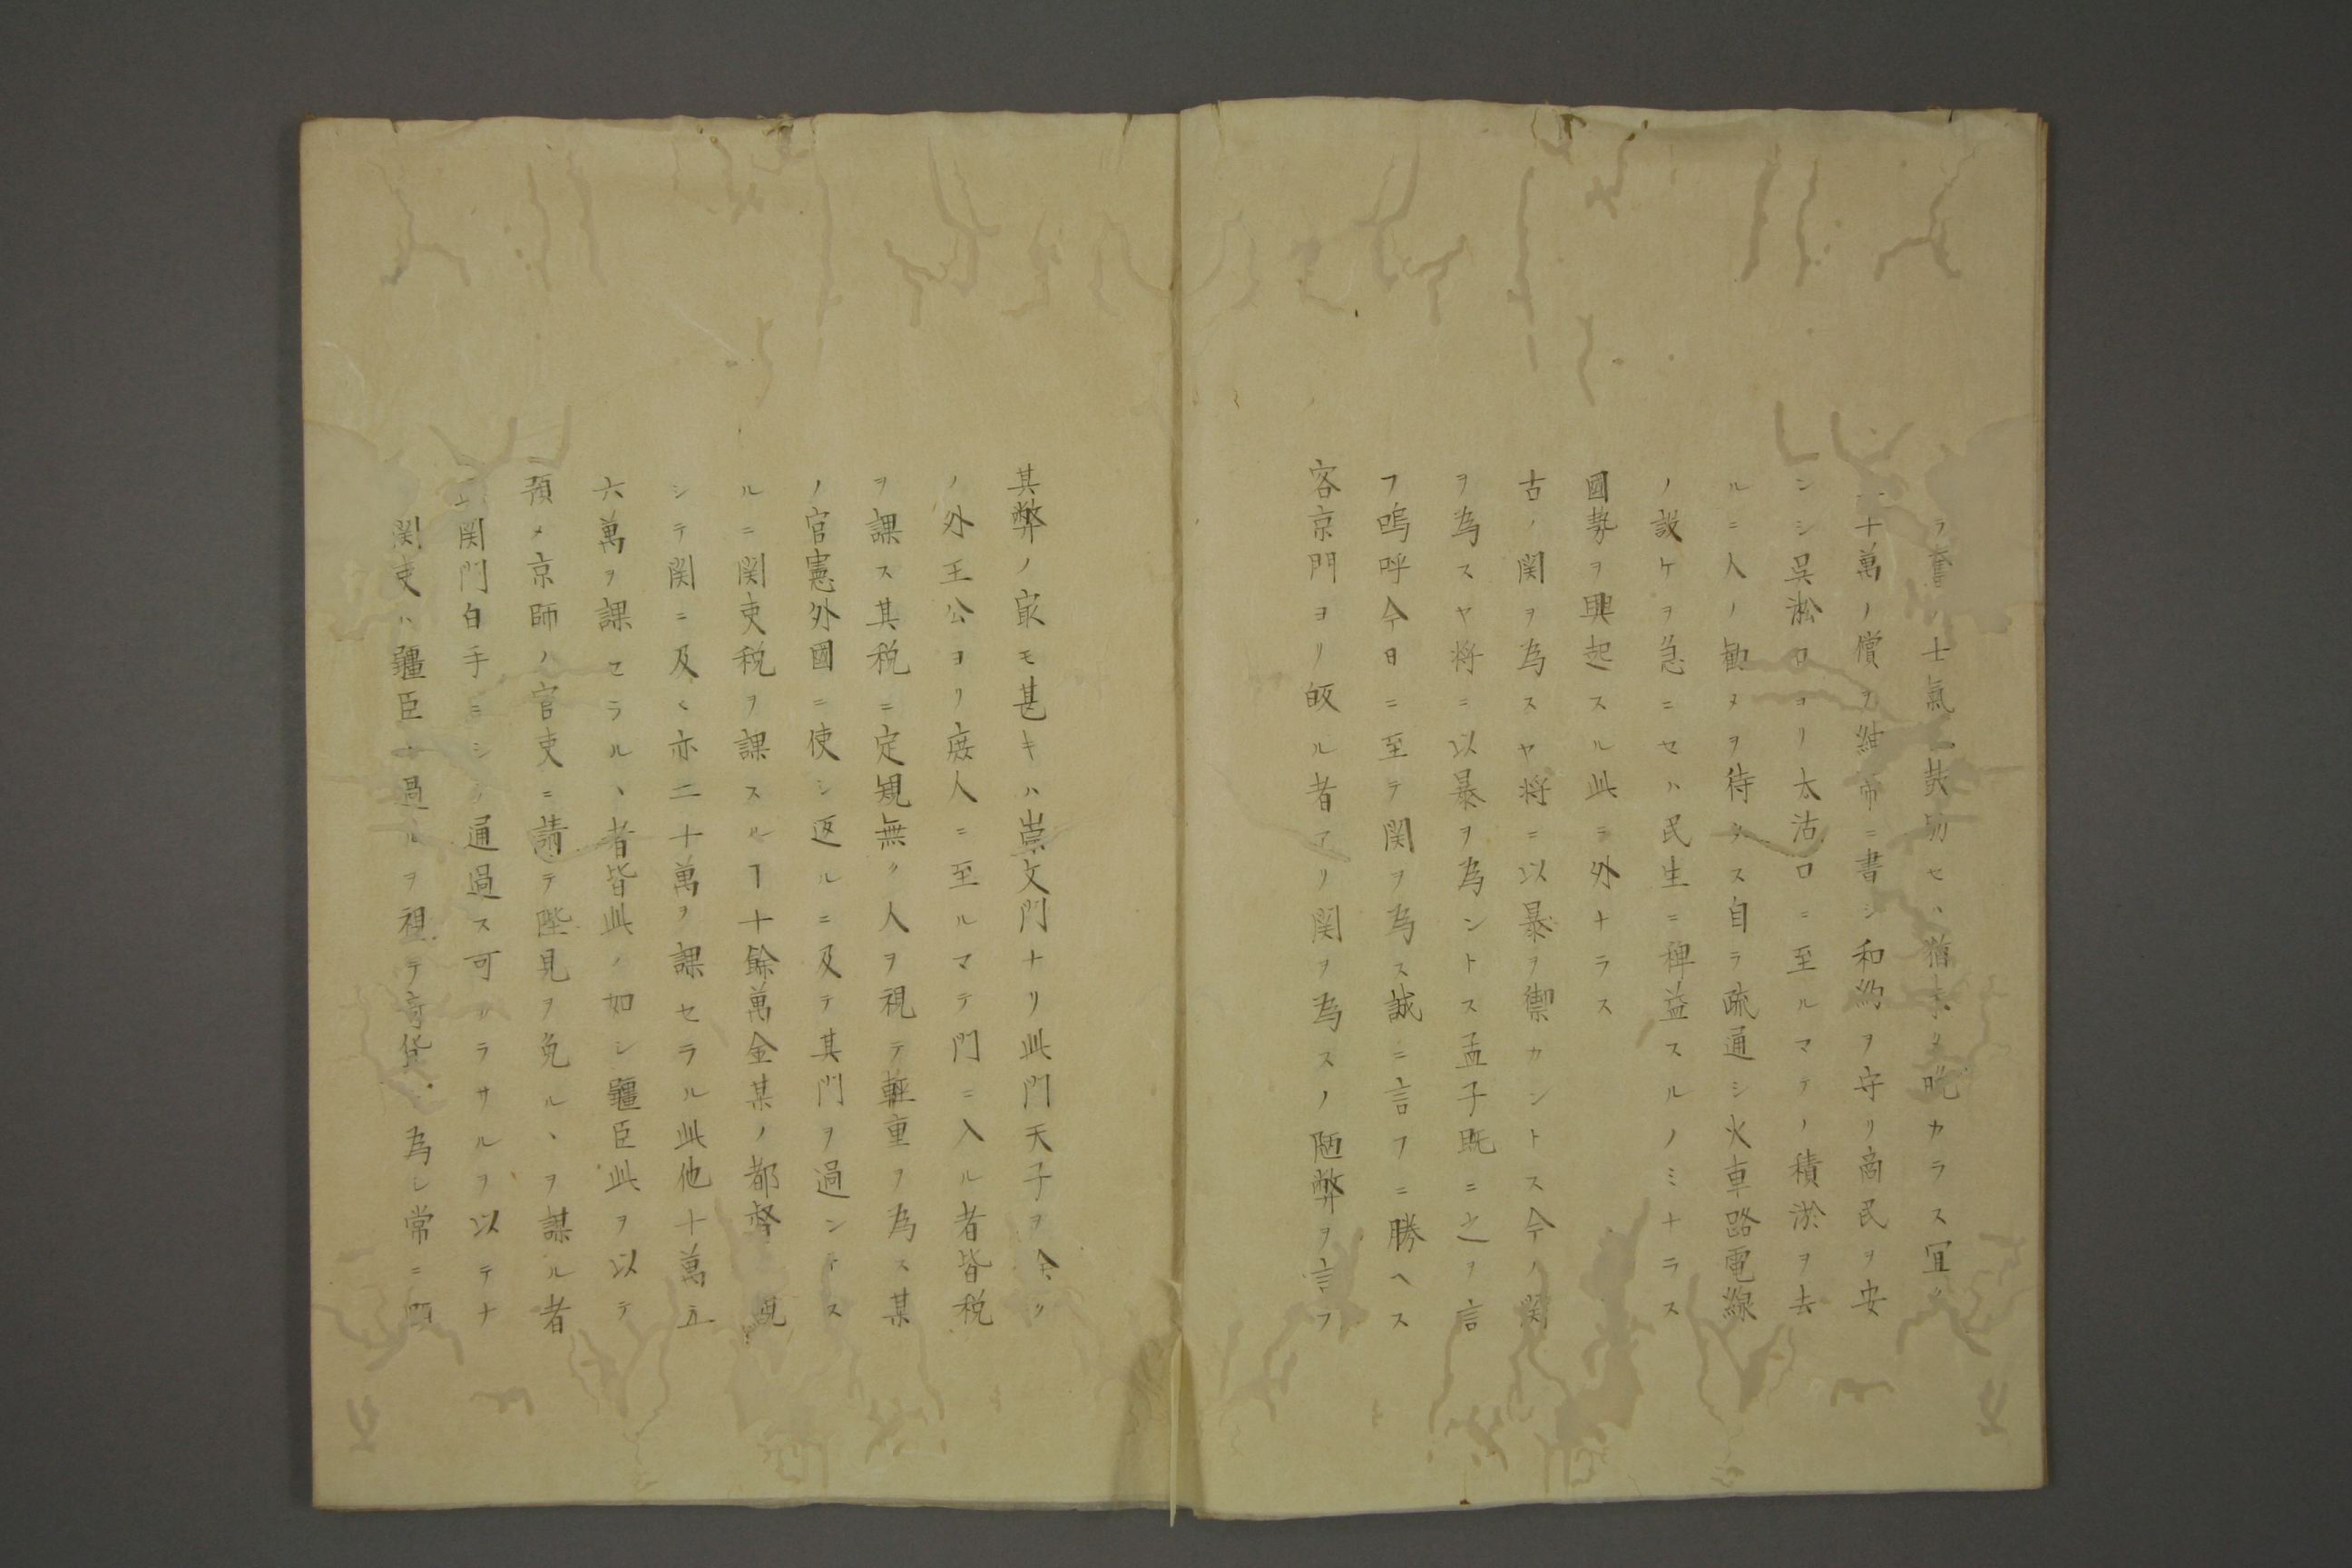 ラ奮ノ士氣ヲ鼓勵セハ猶未タ晩カラス宜ク
十萬ノ償ヲ紳帀ニ書シ和約ヲ守リ商民ヲ安
ンシ呉淞口ヨリ太沽口ニ至ルマテノ積淤ヲ去
ルニ人ノ勧メヲ待タス自ラ疏通シ火車路電線
ノ設ケヲ急ニセハ民生ニ裨益スルノミナラス
國勢ヲ興起スル此ニ外ナラス
古ノ関ヲ為スヤ将ニ以暴ヲ禦カントス今ノ関
ヲ為スヤ将ニ以暴ヲ為ントス孟子既ニ之ヲ言
フ嗚呼今日ニ至テ関ヲ為ス誠ニ言フニ勝ヘス
客京門ヨリ皈ル者アリ関ヲ為スノ陋弊ヲ言フ
其弊ノ㝡モ甚キハ崇文門ナリ此門天子ヲ除ク
ノ外王公ヨリ庶人ニ至ルマテ門ニ入ル者皆税
ヲ課ス其税ニ定規無ク人ヲ視テ軽重ヲ為ス某
ノ官憲外國ニ使シ返ルニ及テ其門ヲ過ントス
ルニ関吏税ヲ課スルヿ十餘萬金某ノ都督
シテ関ニ及ヒ亦二十萬ヲ課セラル此他十萬五
六萬ヲ課セラルヽ者皆此ノ如シ疆臣此ヲ以テ
預メ京師ノ官吏ニ請テ陛見ヲ免ルヽヲ謀ル者
ハ関門白手ニシテ通過ス可カラサルヲ以テナ
関吏ハ疆臣ノ過ルヲ視テ奇貨ト為シ常ニ